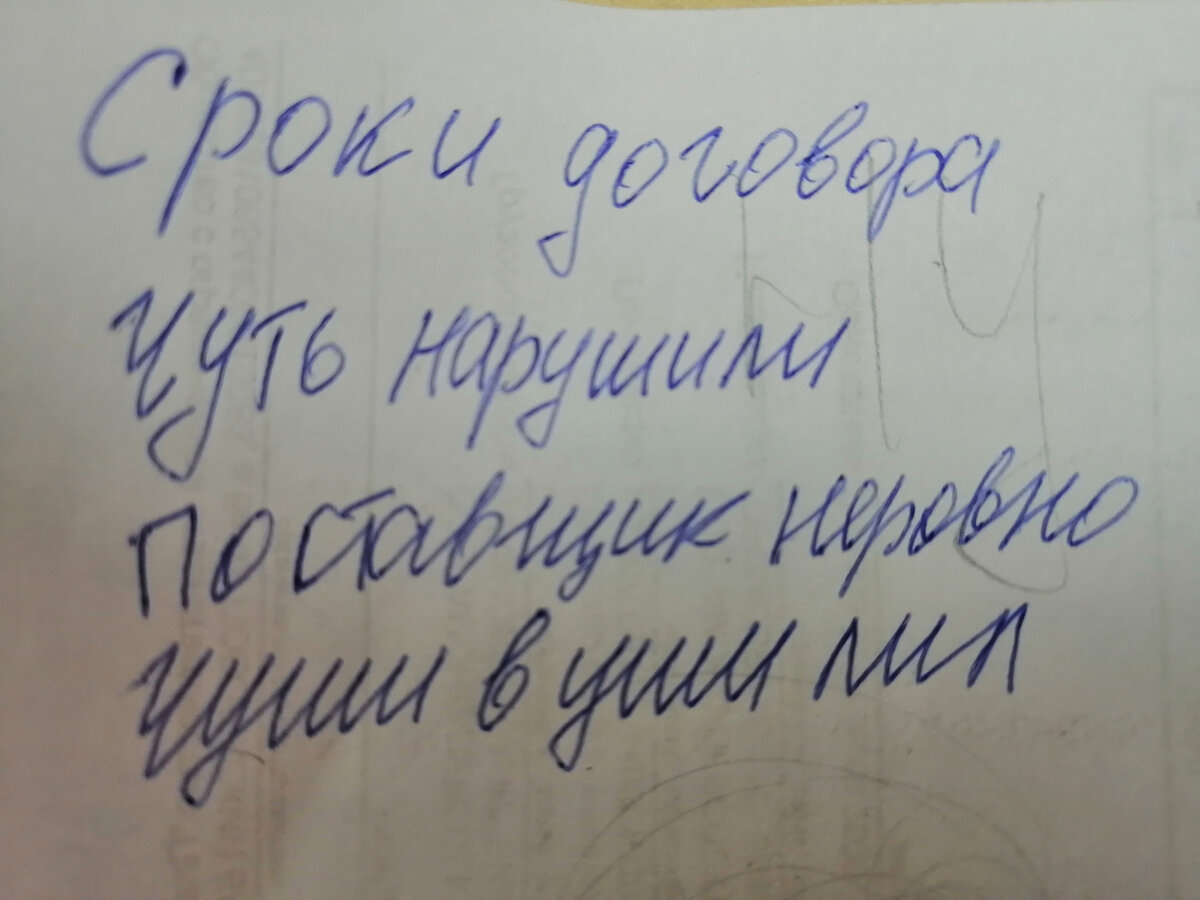 Сроки договора
Чуть нарушили
Поставщик неровно
Чуши в уши лил